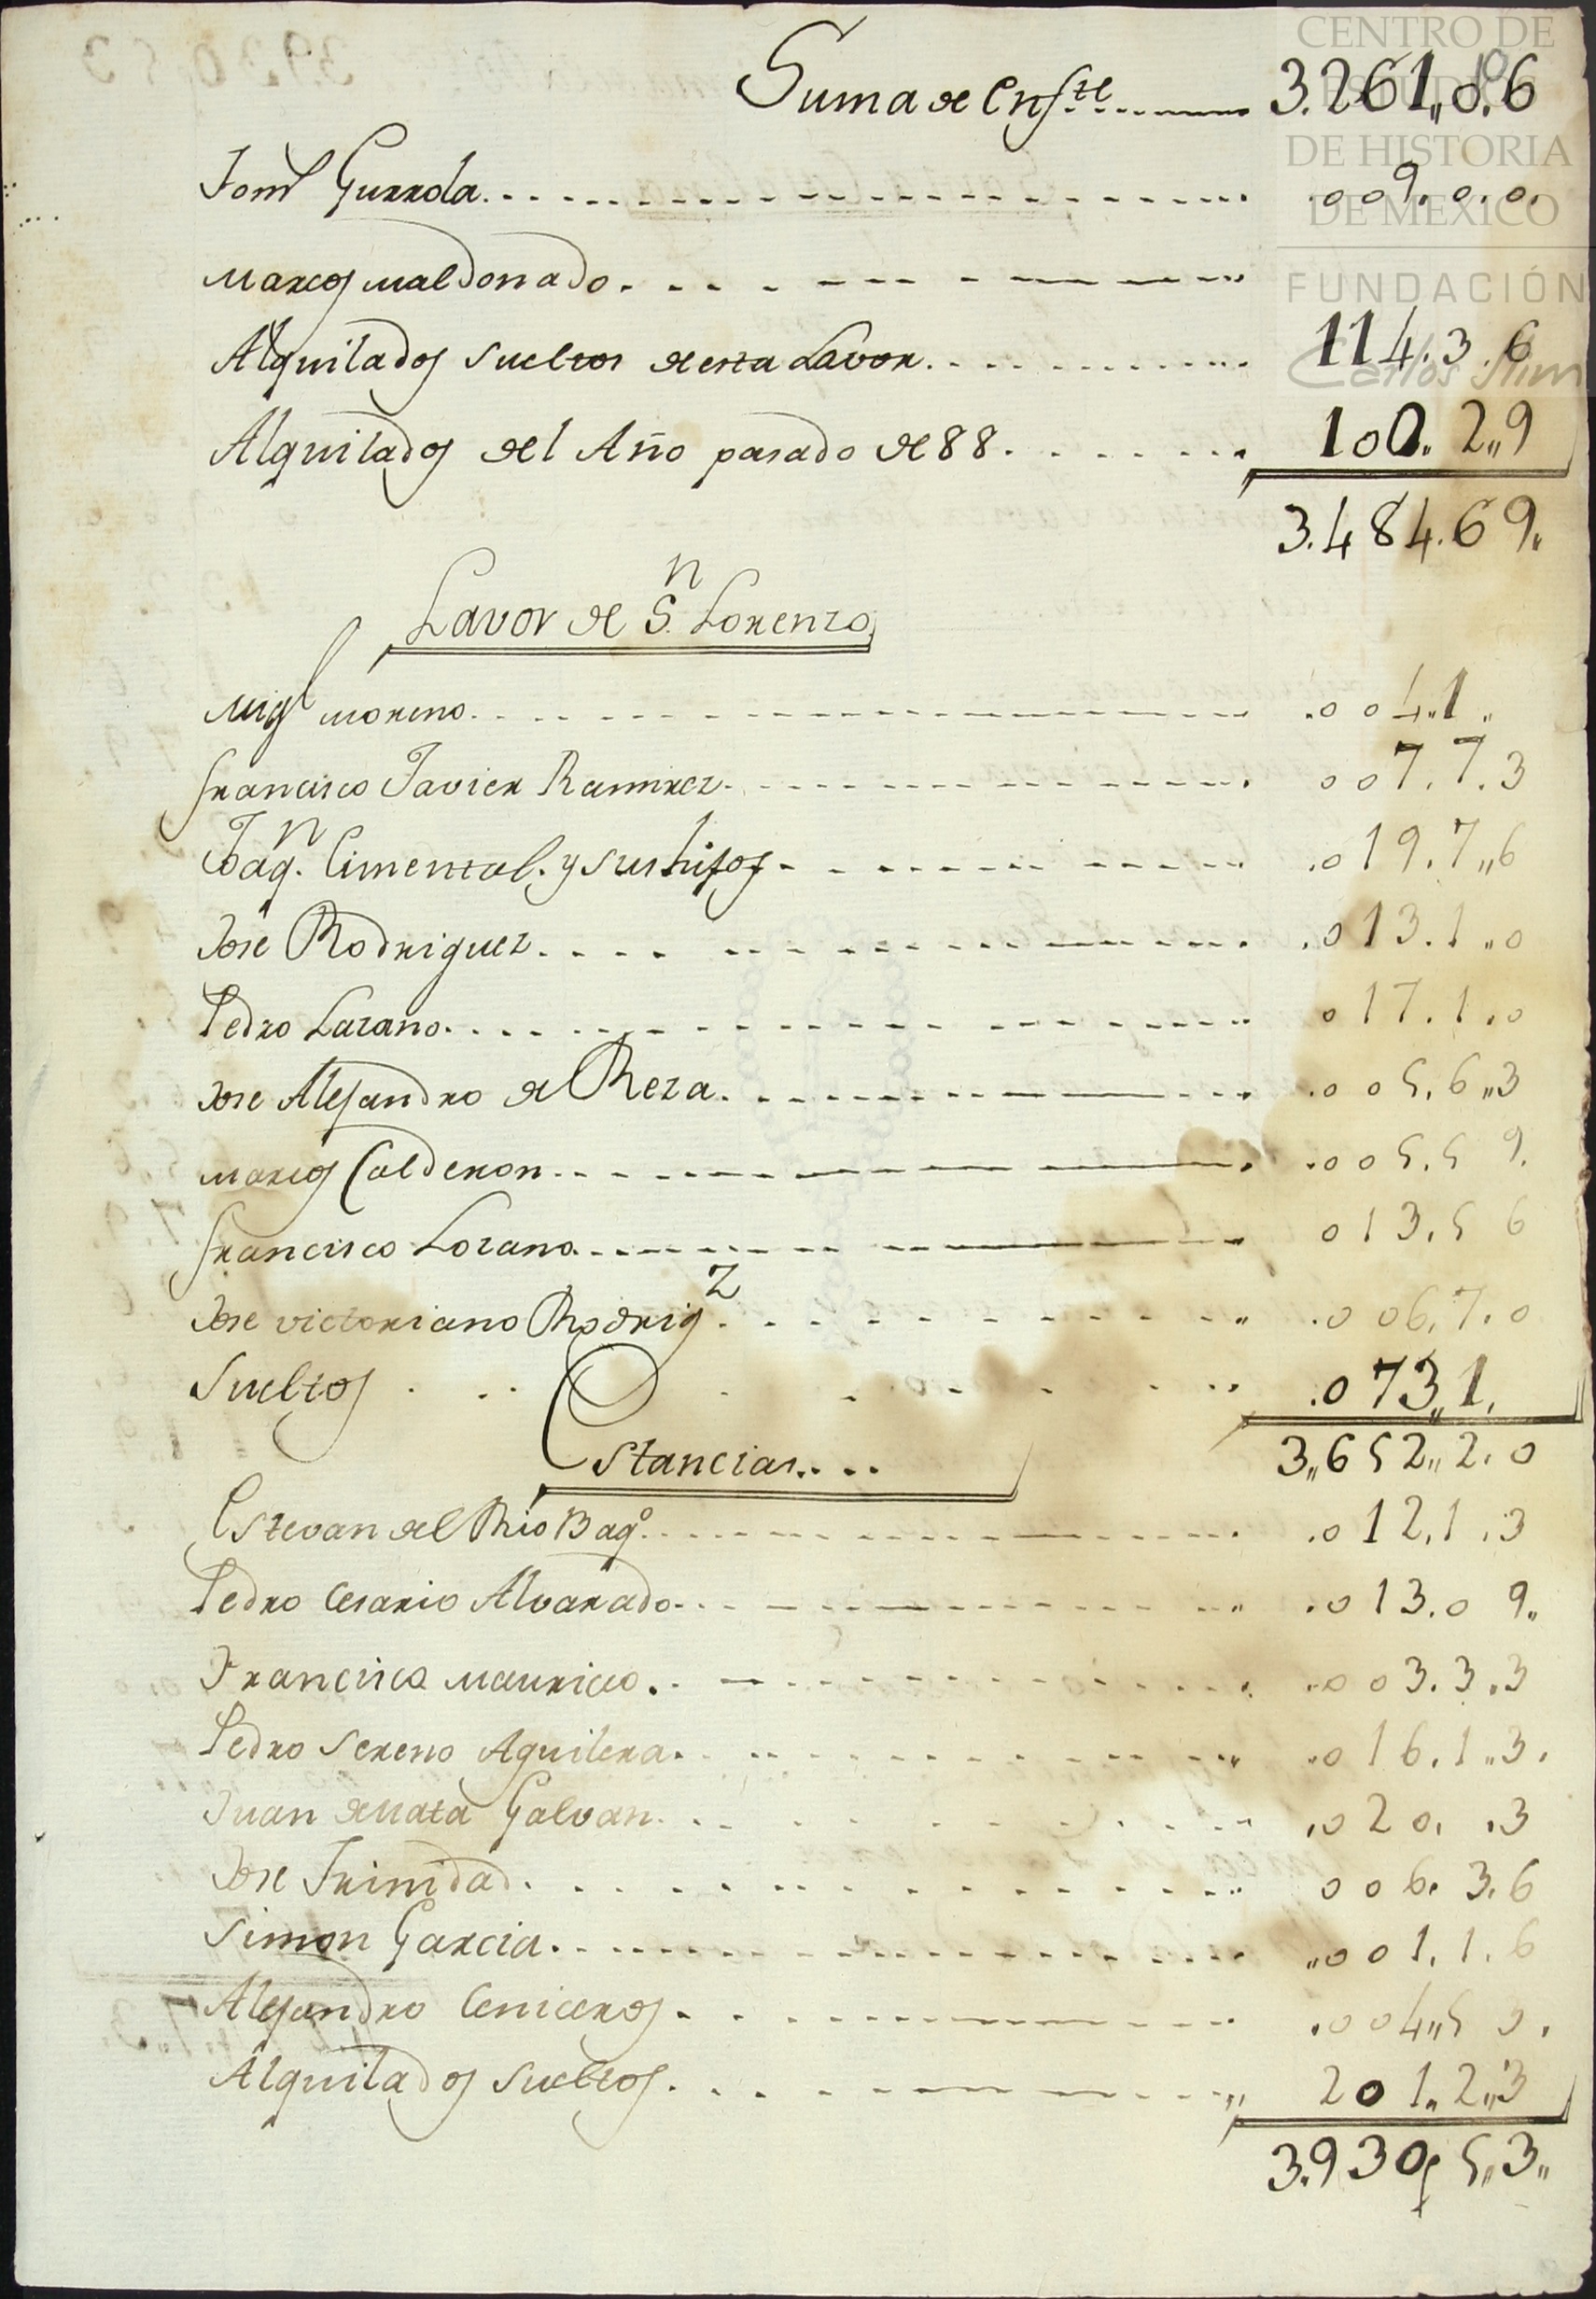 Suma de enfte 3.261,,0.6
CENTRO DE
ESTUDIOS
DE HISTORIA
DE MEXICO
FUNDACIÓN
Carlos Slim
Gurrola .009.0.0.
Marcos Maldonado
Alquilados sueltos de esta Lavor 114.3.6
Alquilados del Año pasado de 88 100.2,,9
3.484.69,,
Lavor de Sn. Lorenzo
Migl Moreno .004,,1,,
Francisco Javier Ramirez 007.7.3
Joaqn. Cimental. y sus hijos .019.7,,6
Jose Rodriguez .013.1,,0
Pedro Lazano 017.1.0
Jose Alejandro de Reza .005.6,,3
Marcos Calderon .005.5 9.
Francisco Lozano 013.5 6
Jose Victoriano Rodrigz .006.7.0
Sueltos .073,,1.
3,,652,,2.0
Estancias
Estevan del Rio Baqo. .012.1.3
Pedro Cesario Alvarado .013.0 9,,
Francisco Mauricio .003.3.3
Pedro Sereno Aguilera .016.1,,3.
Juan de Mata Galvan .020. .3
Jose Trinidad 006.3.6
Simon Garcia ,,001.1.6
Alejandro Ceniceros .004,,5 3.
Alquilados sueltos 201,,2,,3
3.930,, 5,,3,,